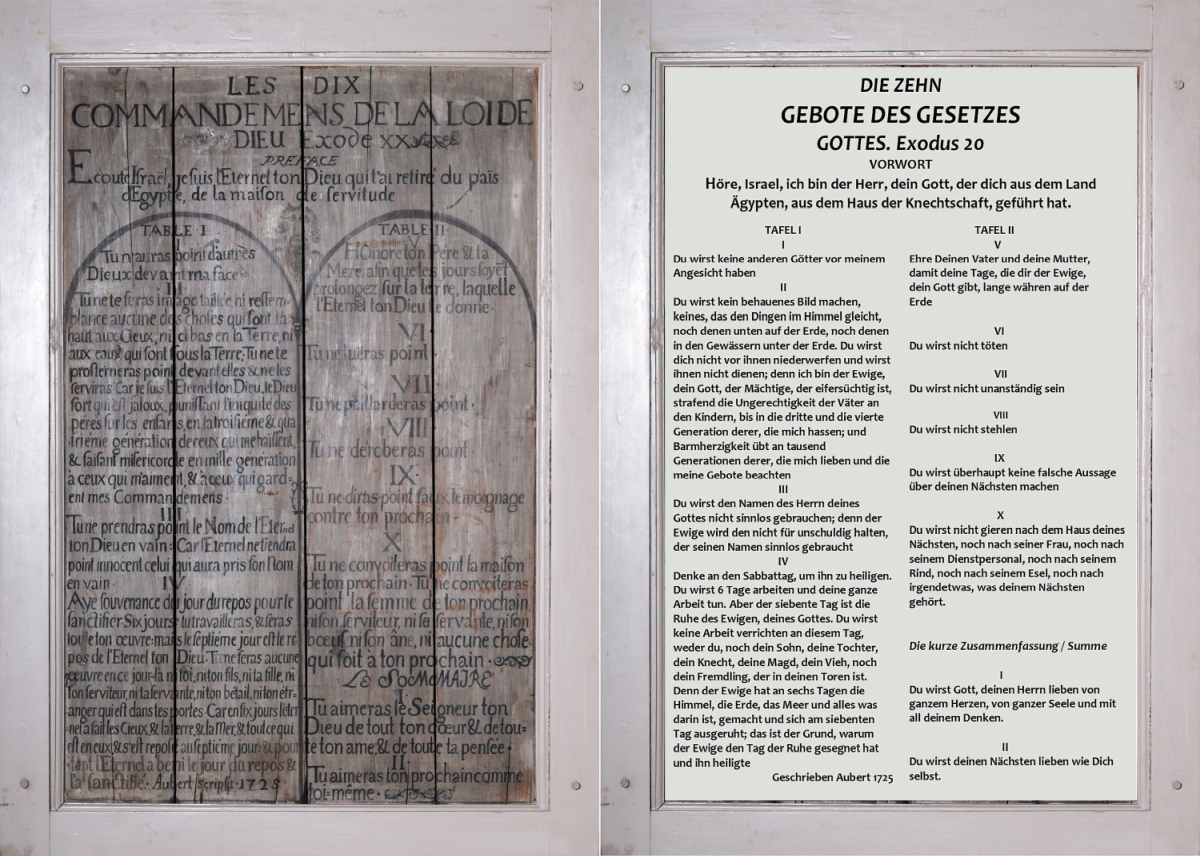 LES DIX
COMMANDEMENS DE LA LOI DE
DIEU Exode XX
PREFACE
Ecoute Israël, je suis l'Eternel ton Dieu qui t'ai retiré du païs
d'Egypte, de la maison de servitude
TABLE I
I
Tu n'auras point d'autres
Dieux devant ma face
II
Tu ne te feras image taillée ni ressem-
blance aucune des choses qui sont là
haut aux Cieux, ni ci bas en la Terre, ni
aux eaux qui sont sous la Terre, Tu ne te
prosterneras point devant elles & ne les
serviras Car je suis l'Eternel ton Dieu, le Dieu
fort qui est jaloux, punissant l'iniquité des
peres sur les enfans, en la troisième & qua
trième génération de ceux qui me haïssent,
& faisant misericorde en mille génération
à ceux qui m'aiment, & à ceux qui gard-
ent mes Commandemens.
III
Tu ne prendras point le Nom de l'Eternel
ton Dieu en vain: Car l'Eternel ne tiendra
point innocent celui qui aura pris son Nom
en vain.
IV
Aye souvenance du jour du repos pour le
sanctifier. Six jours tu travailleras, & feras
toute ton œuvre: mais le septième jour est le re
pos de l'Eternel ton Dieu. Tu ne feras aucune
œuvre en ce jour-là ni toi, ni ton fils, ni ta fille, ni
ton serviteur, ni ta servante, ni ton bétail, ni ton étr-
anger qui est dans tes portes. Car en six jours l'éter
nel a fait les Cieux, & la terre, & la Mer, & tout ce qui
est en eux, & s'est reposé au septième jour: & pour
tant l'Eternel a beni le jour du repos &
l'a sanctifié. Aubert scripsit 1725
TABLE II
V
Honore ton Père & ta
Mere, afin que tes jours soyët
prolongez sur la terre, laquelle
l'Eternel ton Dieu te donne.
VI
Tu ne tueras point
VII
Tu ne paillarderas point.
VIII
Tu ne déroberas point
IX
Tu ne diras point faux temoignage
contre ton prochain.
X
Tu ne convoiteras point la maison
de ton prochain. Tu ne convoiteras
point la femme de ton prochain
ni son serviteur, ni sa servante, ni son
boeuf, ni son âne, ni aucune chose
qui soit à ton prochain.
LE SOMMAIRE
I
Tu aimeras le Seigneur ton
Dieu de tout ton cœur & de tou-
te ton ame, & de toute ta pensée.
II
Tu aimeras ton prochain comme
toi-même.
DIE ZEHN
GEBOTE DES GESETZES
GOTTES. Exodus 20
VORWORT
Höre, Israel, ich bin der Herr, dein Gott, der dich aus dem Land
Ägypten, aus dem Haus der Knechtschaft, geführt hat.
TAFEL I
I
Du wirst keine anderen Götter vor meinem
Angesicht haben
II
Du wirst kein behauenes Bild machen,
keines, das den Dingen im Himmel gleicht,
noch denen unten auf der Erde, noch denen
in den Gewässern unter der Erde. Du wirst
dich nicht vor ihnen niederwerfen und wirst
ihnen nicht dienen; denn ich bin der Ewige,
dein Gott, der Mächtige, der eifersüchtig ist,
strafend die Ungerechtigkeit der Väter an
den Kindern, bis in die dritte und die vierte
Generation derer, die mich hassen; und
Barmherzigkeit übt an tausend
Generationen derer, die mich lieben und die
meine Gebote beachten
III
Du wirst den Namen des Herrn deines
Gottes nicht sinnlos gebrauchen; denn der
Ewige wird den nicht für unschuldig halten,
der seinen Namen sinnlos gebraucht
IV
Denke an den Sabbattag, um ihn zu heiligen.
Du wirst 6 Tage arbeiten und deine ganze
Arbeit tun. Aber der siebente Tag ist die
Ruhe des Ewigen, deines Gottes. Du wirst
keine Arbeit verrichten an diesem Tag,
weder du, noch dein Sohn, deine Tochter,
dein Knecht, deine Magd, dein Vieh, noch
dein Fremdling, der in deinen Toren ist.
Denn der Ewige hat an sechs Tagen die
Himmel, die Erde, das Meer und alles was
darin ist, gemacht und sich am siebenten
Tag ausgeruht; das ist der Grund, warum
der Ewige den Tag der Ruhe gesegnet hat
und ihn heiligte
Geschrieben Aubert 1725
TAFEL II
V
Ehre Deinen Vater und deine Mutter,
damit deine Tage, die dir der Ewige,
dein Gott gibt, lange währen auf der
Erde
VI
Du wirst nicht töten
VII
Du wirst nicht unanständig sein
VIII
Du wirst nicht stehlen
IX
Du wirst überhaupt keine falsche Aussage
über deinen Nächsten machen
X
Du wirst nicht gieren nach dem Haus deines
Nächsten, noch nach seiner Frau, noch nach
seinem Dienstpersonal, noch nach seinem
Rind, noch nach seinem Esel, noch nach
irgendetwas, was deinem Nächsten
gehört.
Die kurze Zusammenfassung / Summe
I
Du wirst Gott, deinen Herrn lieben von
ganzem Herzen, von ganzer Seele und mit
all deinem Denken.
II
Du wirst deinen Nächsten lieben wie Dich
selbst.